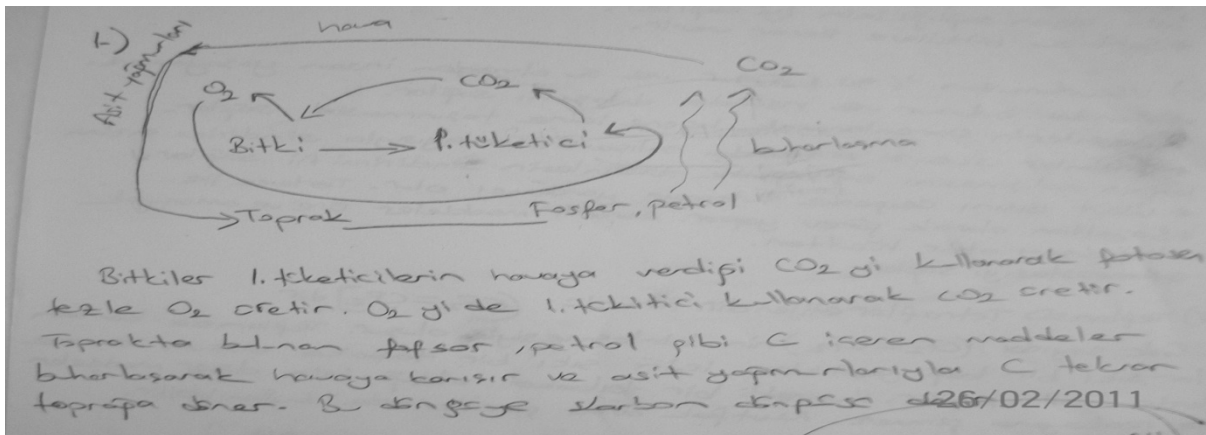 1-)
hava
Asit yağmurları
CO2
O2
CO2
Bitki
1. tüketici
buharlaşma
Toprak
Fosfor, petrol
Bitkiler 1. tüketicilerin havaya verdiği CO2 yi kullanarak fotosen
tezle O2 üretir. O2 yi de 1. tükitici kullanarak CO2 üretir.
Toprakta bulunan , petrol gibi C içeren maddeler
buharlaşarak havaya karışır ve asit yağmurlarıyla C tekrar
toprağa döner. Bu döngüye karbon döngüsü
26/02/2011